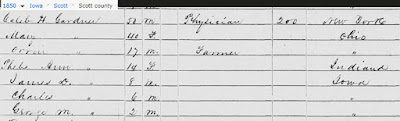 1850 Iowa Scott Scott county
Caleb H. Gardner 50 M Physician 200 New York
Mary " 40 F Ohio
Orrin " 17 M Farmer "
Phebe Ann " 14 F Indiana
James L. " 8 M Iowa
Charles " 6 M "
George M. " 2 M "